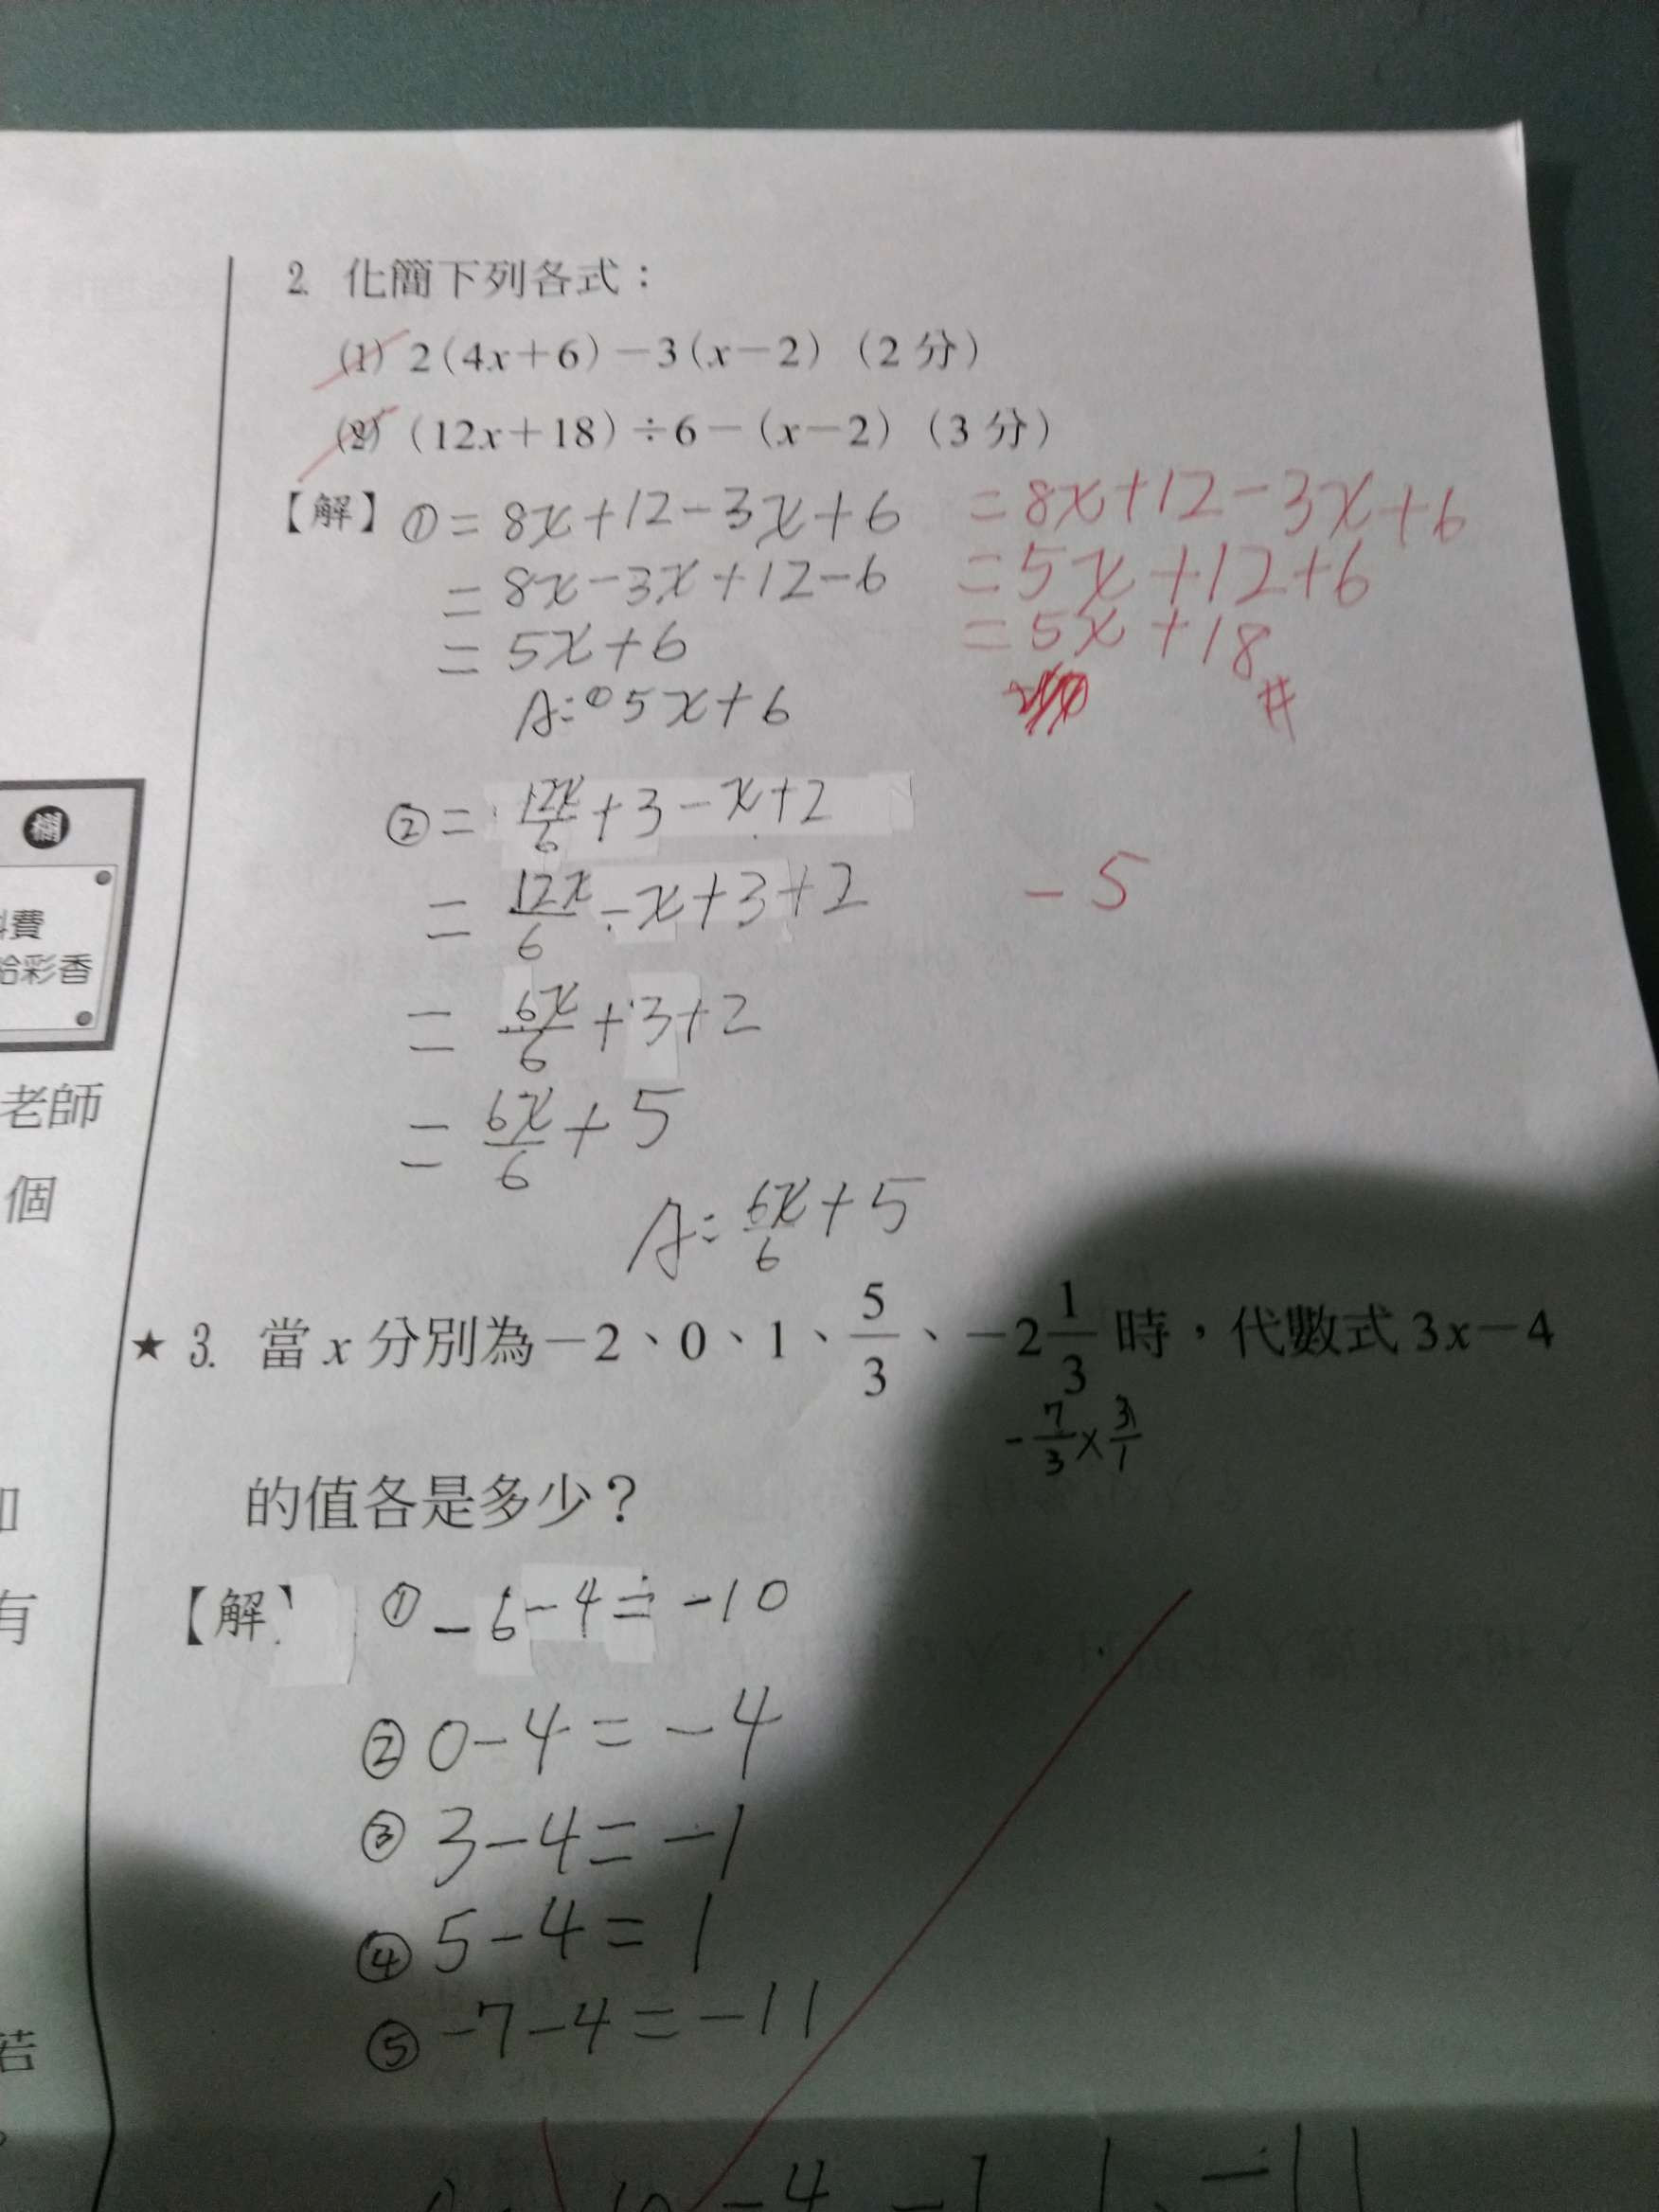 2. 化簡下列各式：
(1) 2(4x＋6)－3(x－2)（2 分）
(2) (12x＋18)÷6－(x－2)（3 分）
【解】①= 8x+12-3x+6
= 8x-3x+12-6
= 5x+6
A:①5x+6
=8x+12-3x+6
=5x+12+6
=5x+18
#
②= 12x/6+3-x+2
= 12x/6-x+3+2
= 6x/6+3+2
= 6x/6+5
A: 6x/6+5
-5
★ 3. 當 x 分別為－2、0、1、5/3、－2 1/3 時，代數式 3x－4
-7/3×3/1
的值各是多少？
【解】 ① -6-4=-10
② 0-4=-4
③ 3-4=-1
④ 5-4=1
⑤ -7-4=-11
-4 -1 1、-11
欄
費
給彩香
老師
個
有
若